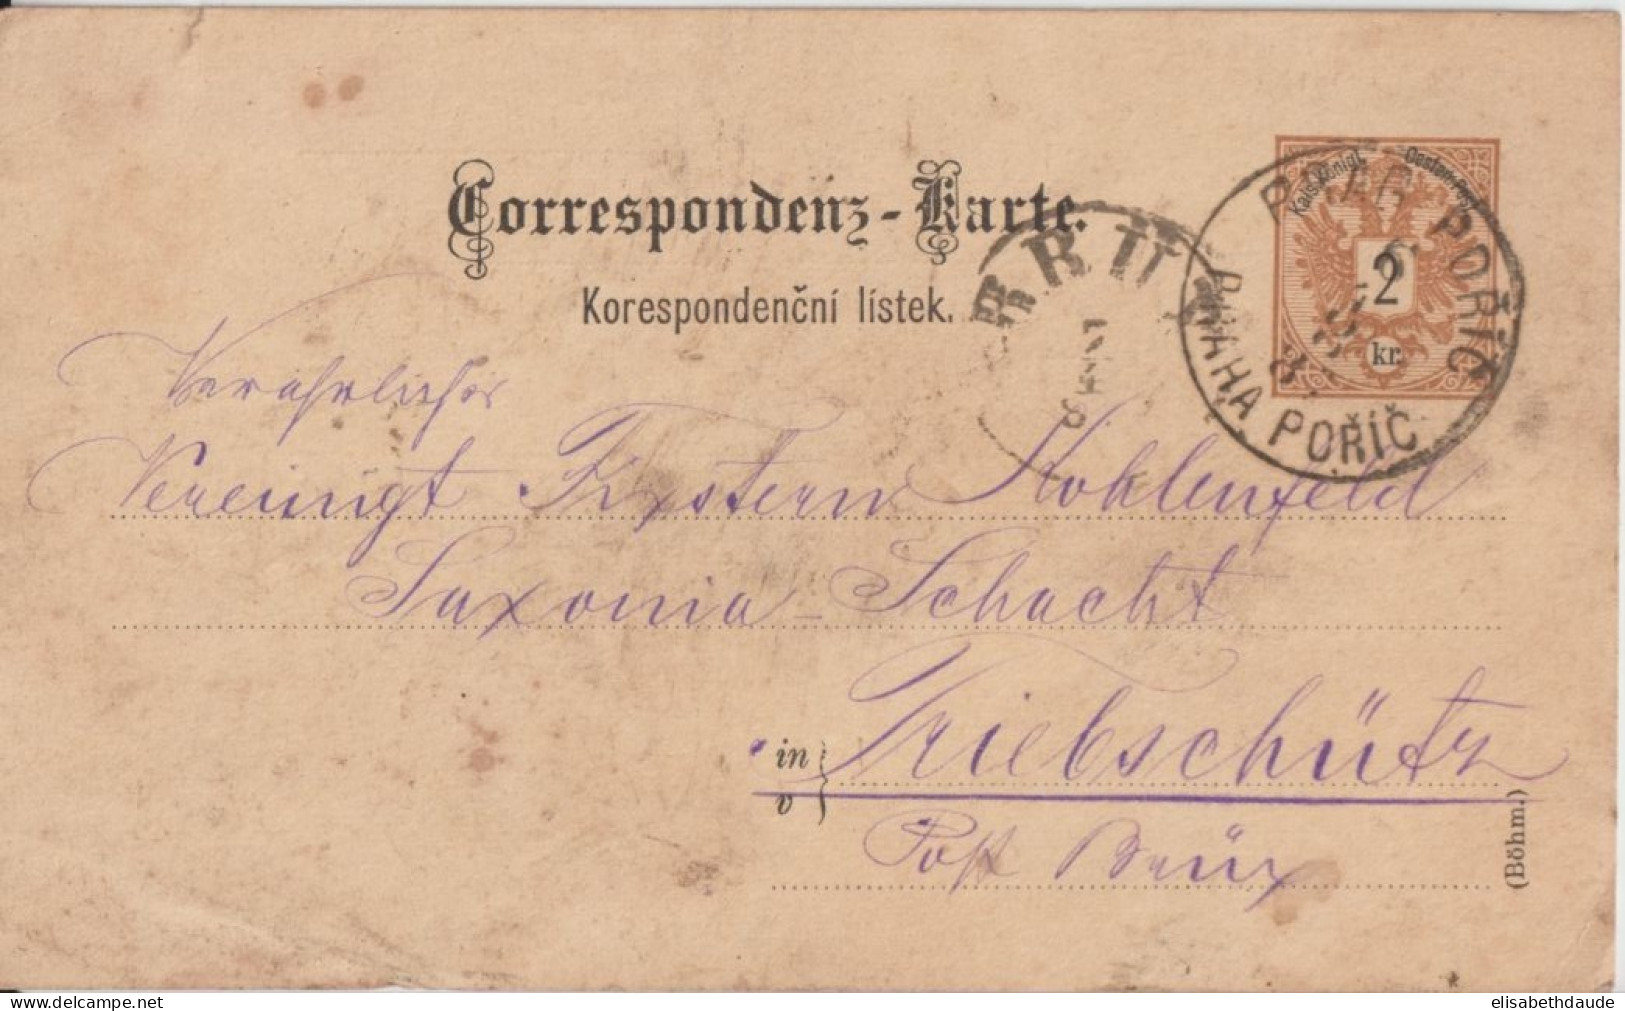 Correspondenz-Karte.
Korespondenční lístek.
Kais. Königl. Oesterr. Post
2
kr.
PRAG POŘÍČ
PRAHA POŘÍČ
BRÜX
Verehrlicher
Vereinigt Fixstern Kohlenfeld
Saxonia-Schacht
in
v
Triebschütz
Post Brüx
(Böhm.)
www.delcampe.net
elisabethdaude